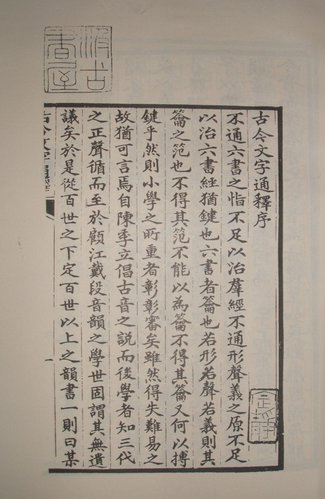 古今文字通釋序
不通六書之恉不足以治羣經不通形聲義之原不足
以治六書經猶鍵也六書者籥也若形若聲若義則其
籥之笵也不得其笵不能以為籥不得其籥又何以摶
鍵乎然則小學之所重者彰彰審矣雖然得失難易之
故猶可言焉自陳季立倡古音之說而後學者知三代
之正聲循而至於顧江戴段音韻之學世固謂其無遺
議矣於是從百世之下定百世以上之韻書一則曰某